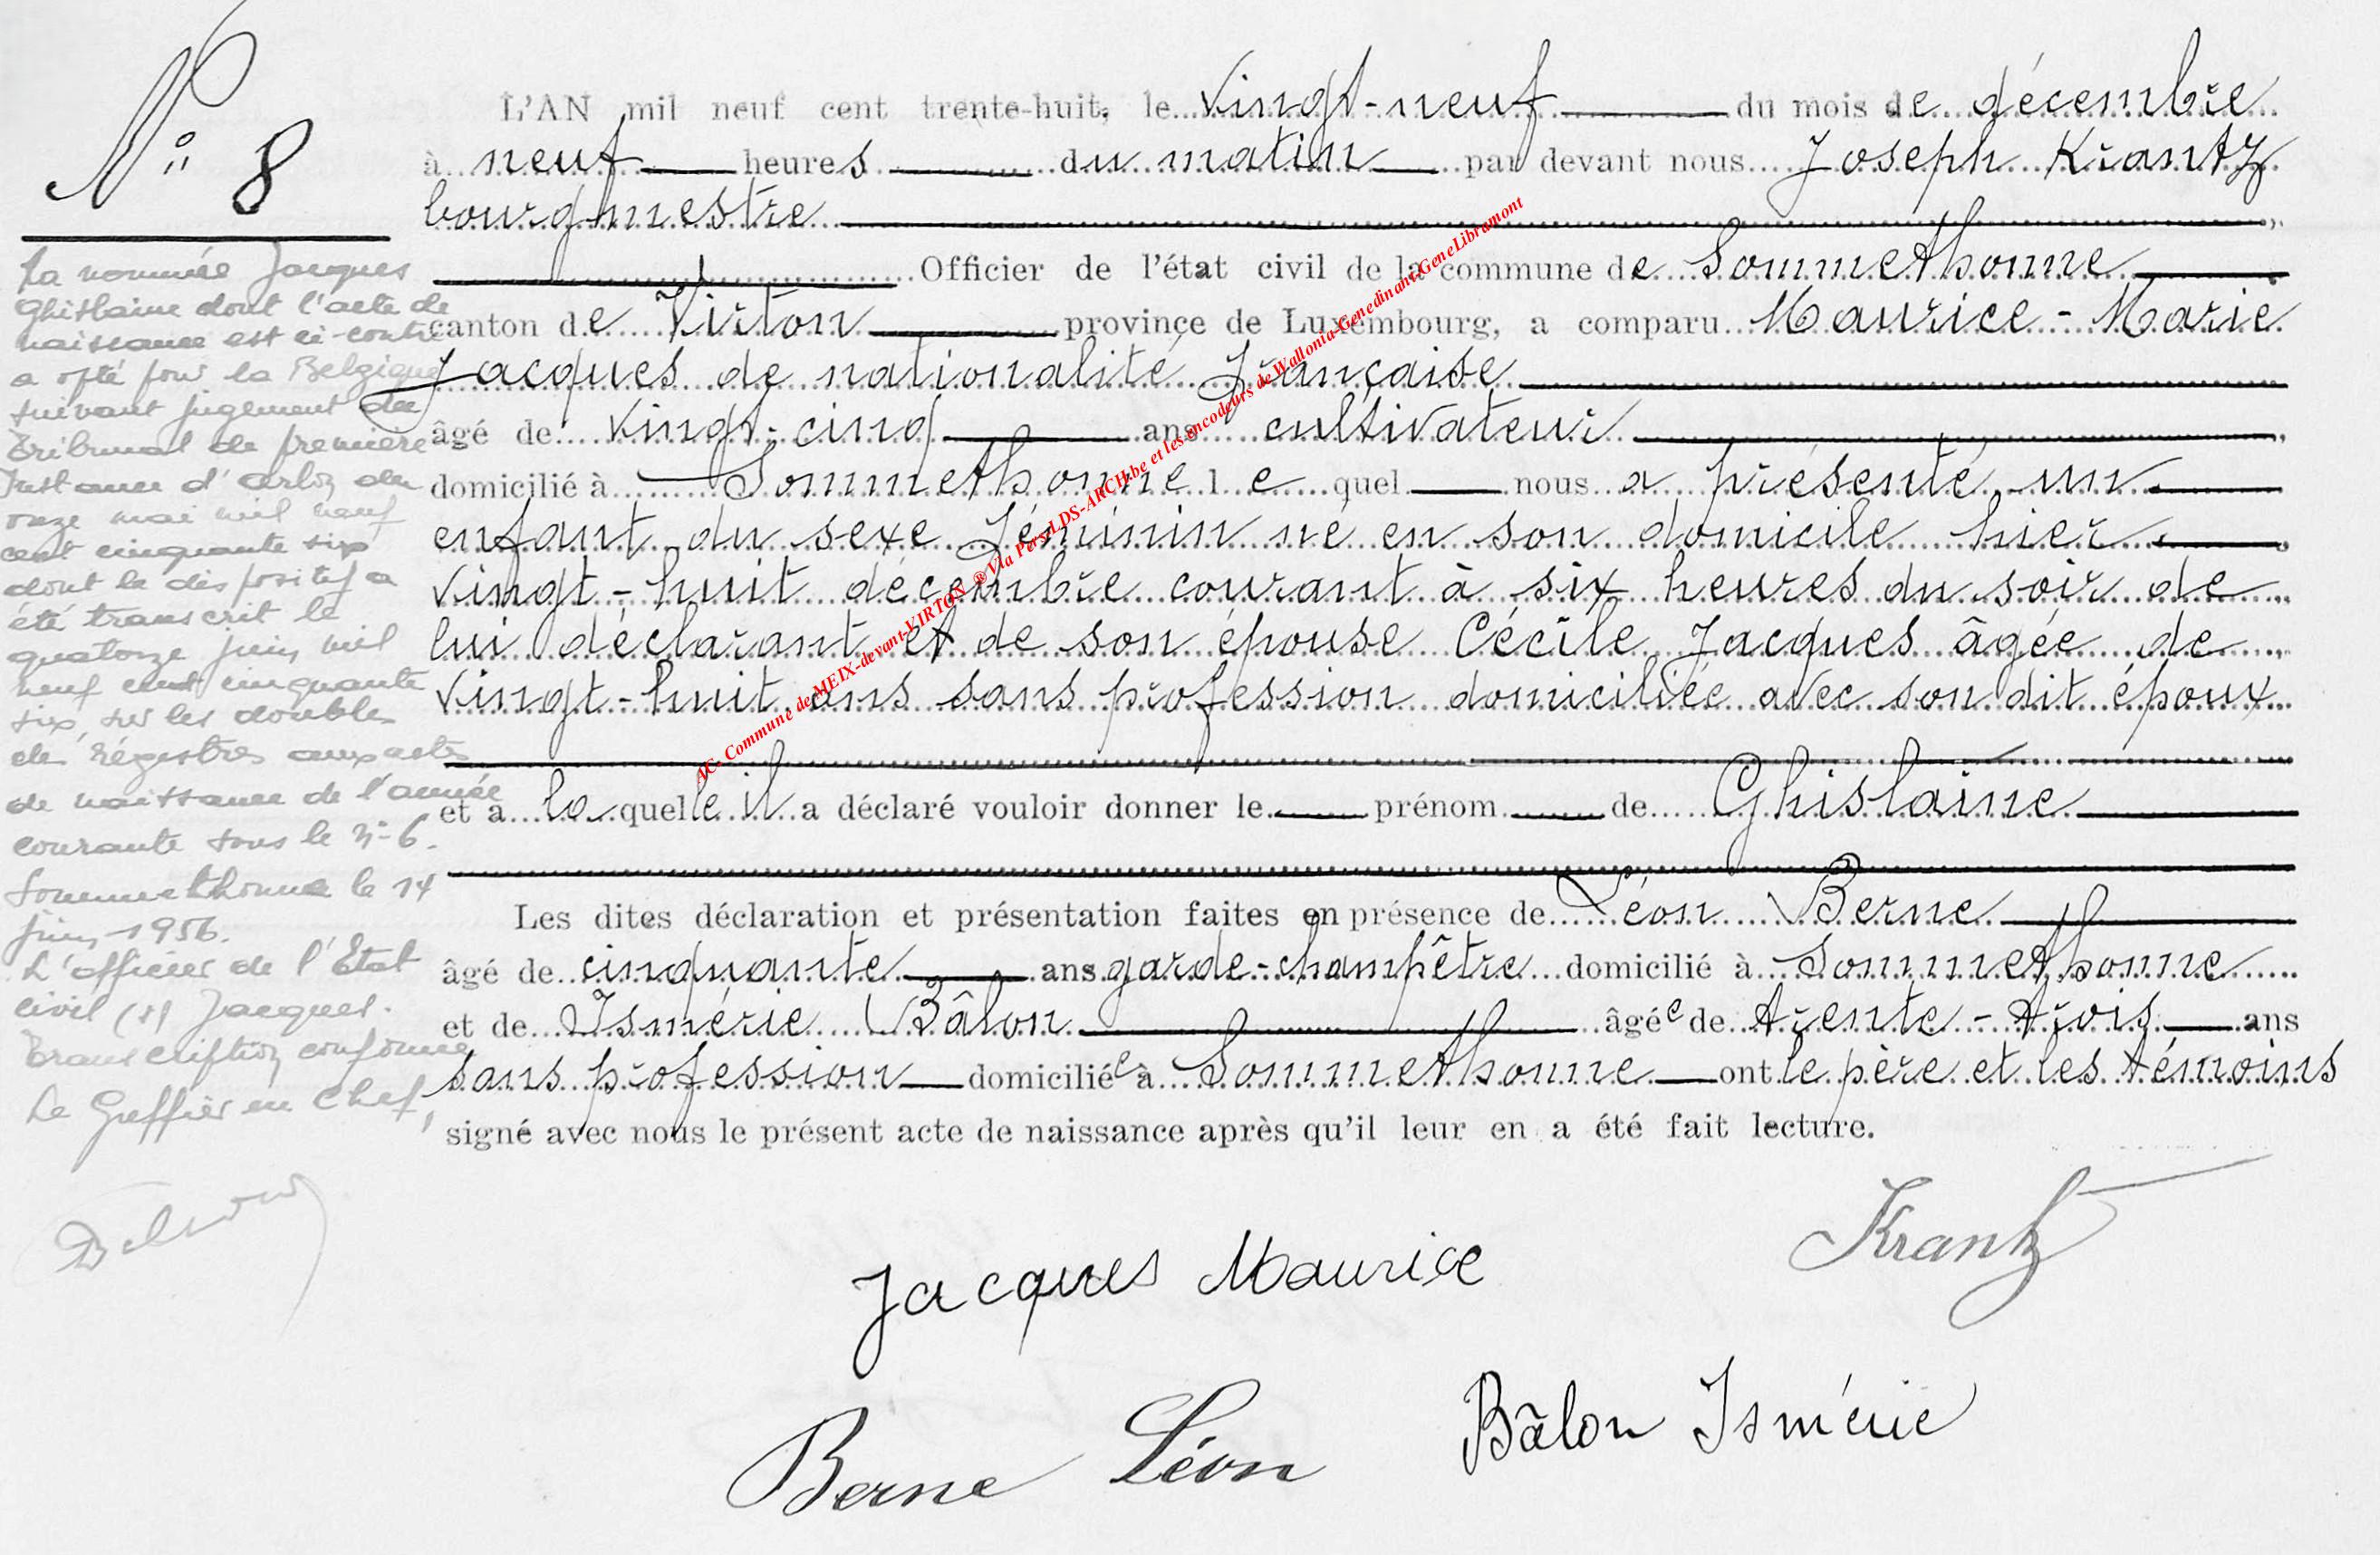 N° 8
L'AN mil neuf cent trente-huit, le vingt-neuf du mois de décembre
à neuf heures du matin par devant nous Joseph Krantz
bourgmestre
Officier de l'état civil de la commune de Sommethonne
canton de Virton province de Luxembourg, a comparu Maurice-Marie
Jacques de nationalité française
âgé de vingt-cinq ans cultivateur
domicilié à Sommethonne le quel nous a présenté un
enfant du sexe féminin né en son domicile hier
vingt-huit décembre courant à six heures du soir de
lui déclarant et de son épouse Cécile Jacques âgée de
vingt-huit ans sans profession domiciliée avec son dit époux
et à la quelle il a déclaré vouloir donner le prénom de Ghislaine
Les dites déclaration et présentation faites en présence de Léon Berne
âgé de cinquante ans garde-champêtre domicilié à Sommethonne
et de Ismérie Bâlon âgée de trente-trois ans
sans profession domiciliée à Sommethonne ont le père et les témoins
signé avec nous le présent acte de naissance après qu'il leur en a été fait lecture.
La nommée Jacques
Ghislaine dont l'acte de
naissance est ci-contre
a opté pour la Belgique
suivant jugement du
Tribunal de première
Instance d'Arlon du
onze mai mil neuf
cent cinquante six
dont le dispositif a
été transcrit le
quatorze juin mil
neuf cent cinquante
six, sur les doubles
des régistres aux actes
de naissance de l'année
courante sous le N° 6.
Sommethonne le 14
juin 1956.
L'officier de l'Etat
civil (s) Jacques.
Transcription conforme
Le Greffier en Chef,
Krantz
Jacques Maurice
Berne Léon
Bâlon Ismérie
AC- Commune de MEIX-devant-VIRTON ® Via Pers-LDS-ARCH.be et les encodeurs de Wallonia-Genedinant-GeneLibramont